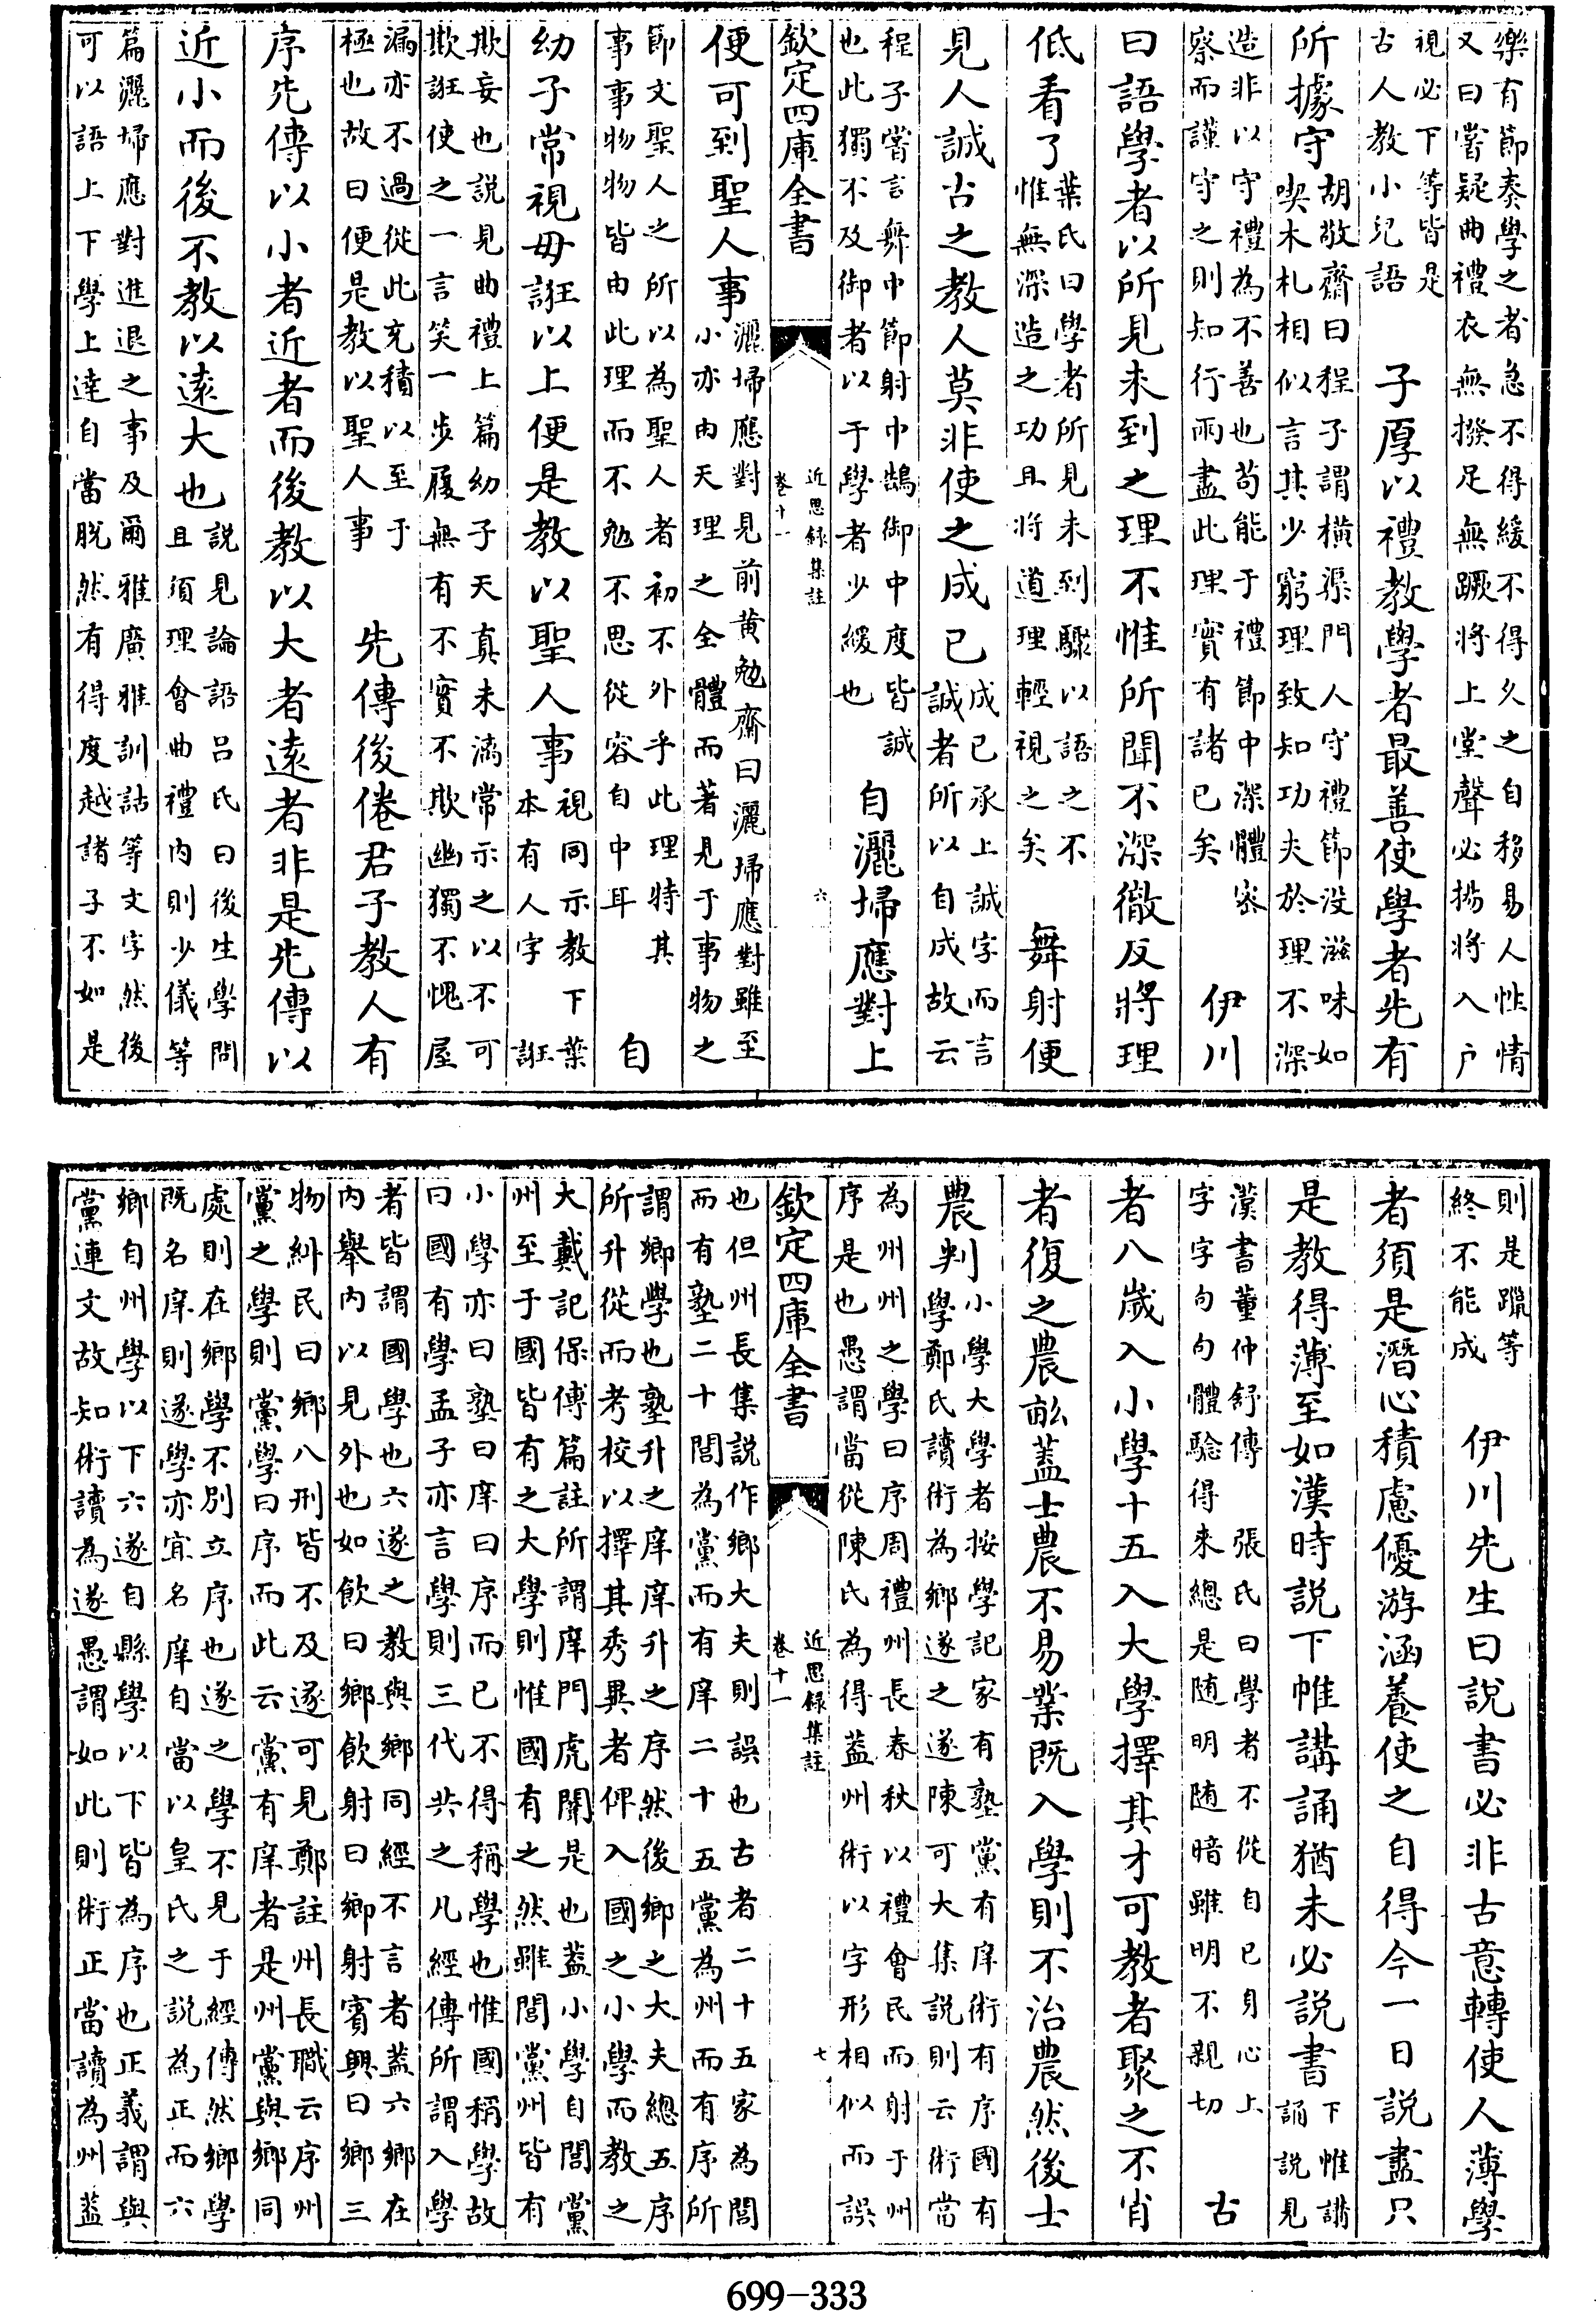 樂有節奏學之者急不得緩不得久久之自移易人性情
又曰嘗疑曲禮衣無撥足無蹶將上堂聲必揚將入户
視必下等皆是
古人教小兒語
子厚以禮教學者最善使學者先有
所據守
胡敬齋曰程子謂横渠門人守禮節没滋味如
喫木札相似言其少窮理致知功夫於理不深
造非以守禮為不善也苟能于禮節中深體密
察而謹守之則知行兩盡此理實有諸已矣
伊川
曰語學者以所見未到之理不惟所聞不深徹反將理
低看了
葉氏曰學者所見未到驟以語之不
惟無深造之功且將道理輕視之矣
舞射便
見人誠古之教人莫非使之成已
成已承上誠字而言
誠者所以自成故云
程子嘗言舞中節射中鵠御中度皆誠
也此獨不及御者以于學者少緩也
自灑掃應對上
欽定四庫全書
近思録集註
卷十一
六
便可到聖人事
灑掃應對見前黄勉齋曰灑掃應對雖至
小亦由天理之全體而著見于事物之
節文聖人之所以為聖人者初不外乎此理特其
事事物物皆由此理而不勉不思從容自中耳
自
幼子常視毋誑以上便是教以聖人事
視同示教下葉
本有人字誑
欺妄也説見曲禮上篇幼子天真未漓常示之以不可
欺誑使之一言笑一步履無有不實不欺幽獨不愧屋
漏亦不過從此充積以至于
極也故曰便是教以聖人事
先傳後倦君子教人有
序先傳以小者近者而後教以大者遠者非是先傳以
近小而後不教以遠大也
説見論語吕氏曰後生學問
且須理會曲禮内則少儀等
篇灑掃應對進退之事及爾雅廣雅訓詁等文字然後
可以語上下學上達自當脱然有得度越諸子不如是
則是躐等
終不能成
伊川先生曰説書必非古意轉使人薄學
者須是潛心積慮優游涵養使之自得今一日説盡只
是教得薄至如漢時説下帷講誦猶未必説書
下帷講
誦説見
漢書董仲舒傳
張氏曰學者不從自已身心上
字字句句體驗得來總是随明随暗雖明不親切
古
者八歲入小學十五入大學擇其才可教者聚之不肖
者復之農畝葢士農不易業既入學則不治農然後士
農判
小學大學者按學記家有塾黨有庠術有序國有
學鄭氏讀術為鄉遂之遂陳可大集説則云術當
為州州之學曰序周禮州長春秋以禮會民而射于州
序是也愚謂當從陳氏為得葢州術以字形相似而誤
欽定四庫全書
近思録集註
卷十一
七
也但州長集説作鄉大夫則誤也古者二十五家為閭
而有塾二十閭為黨而有庠二十五黨為州而有序所
謂鄉學也塾升之庠庠升之序然後鄉之大夫總五序
所升從而考校以擇其秀異者俾入國之小學而教之
大戴記保傅篇註所謂庠門虎闈是也葢小學自閭黨
州至于國皆有之大學則惟國有之然雖閭黨州皆有
小學亦曰塾曰庠曰序而已不得稱學也惟國稱學故
曰國有學孟子亦言學則三代共之凡經傳所謂入學
者皆謂國學也六遂之教與鄉同經不言者葢六鄉在
内舉内以見外也如飲曰鄉飲射曰鄉射賓興曰鄉三
物糾民曰鄉八刑皆不及遂可見鄭註州長職云序州
黨之學則黨學曰序而此云黨有庠者是州黨與鄉同
處則在鄉學不别立序也遂之學不見于經傳然鄉學
既名庠則遂學亦宜名庠自當以皇氏之説為正而六
鄉自州學以下六遂自縣學以下皆為序也正義謂與
黨連文故知術讀為遂愚謂如此則術正當讀為州葢
699-333